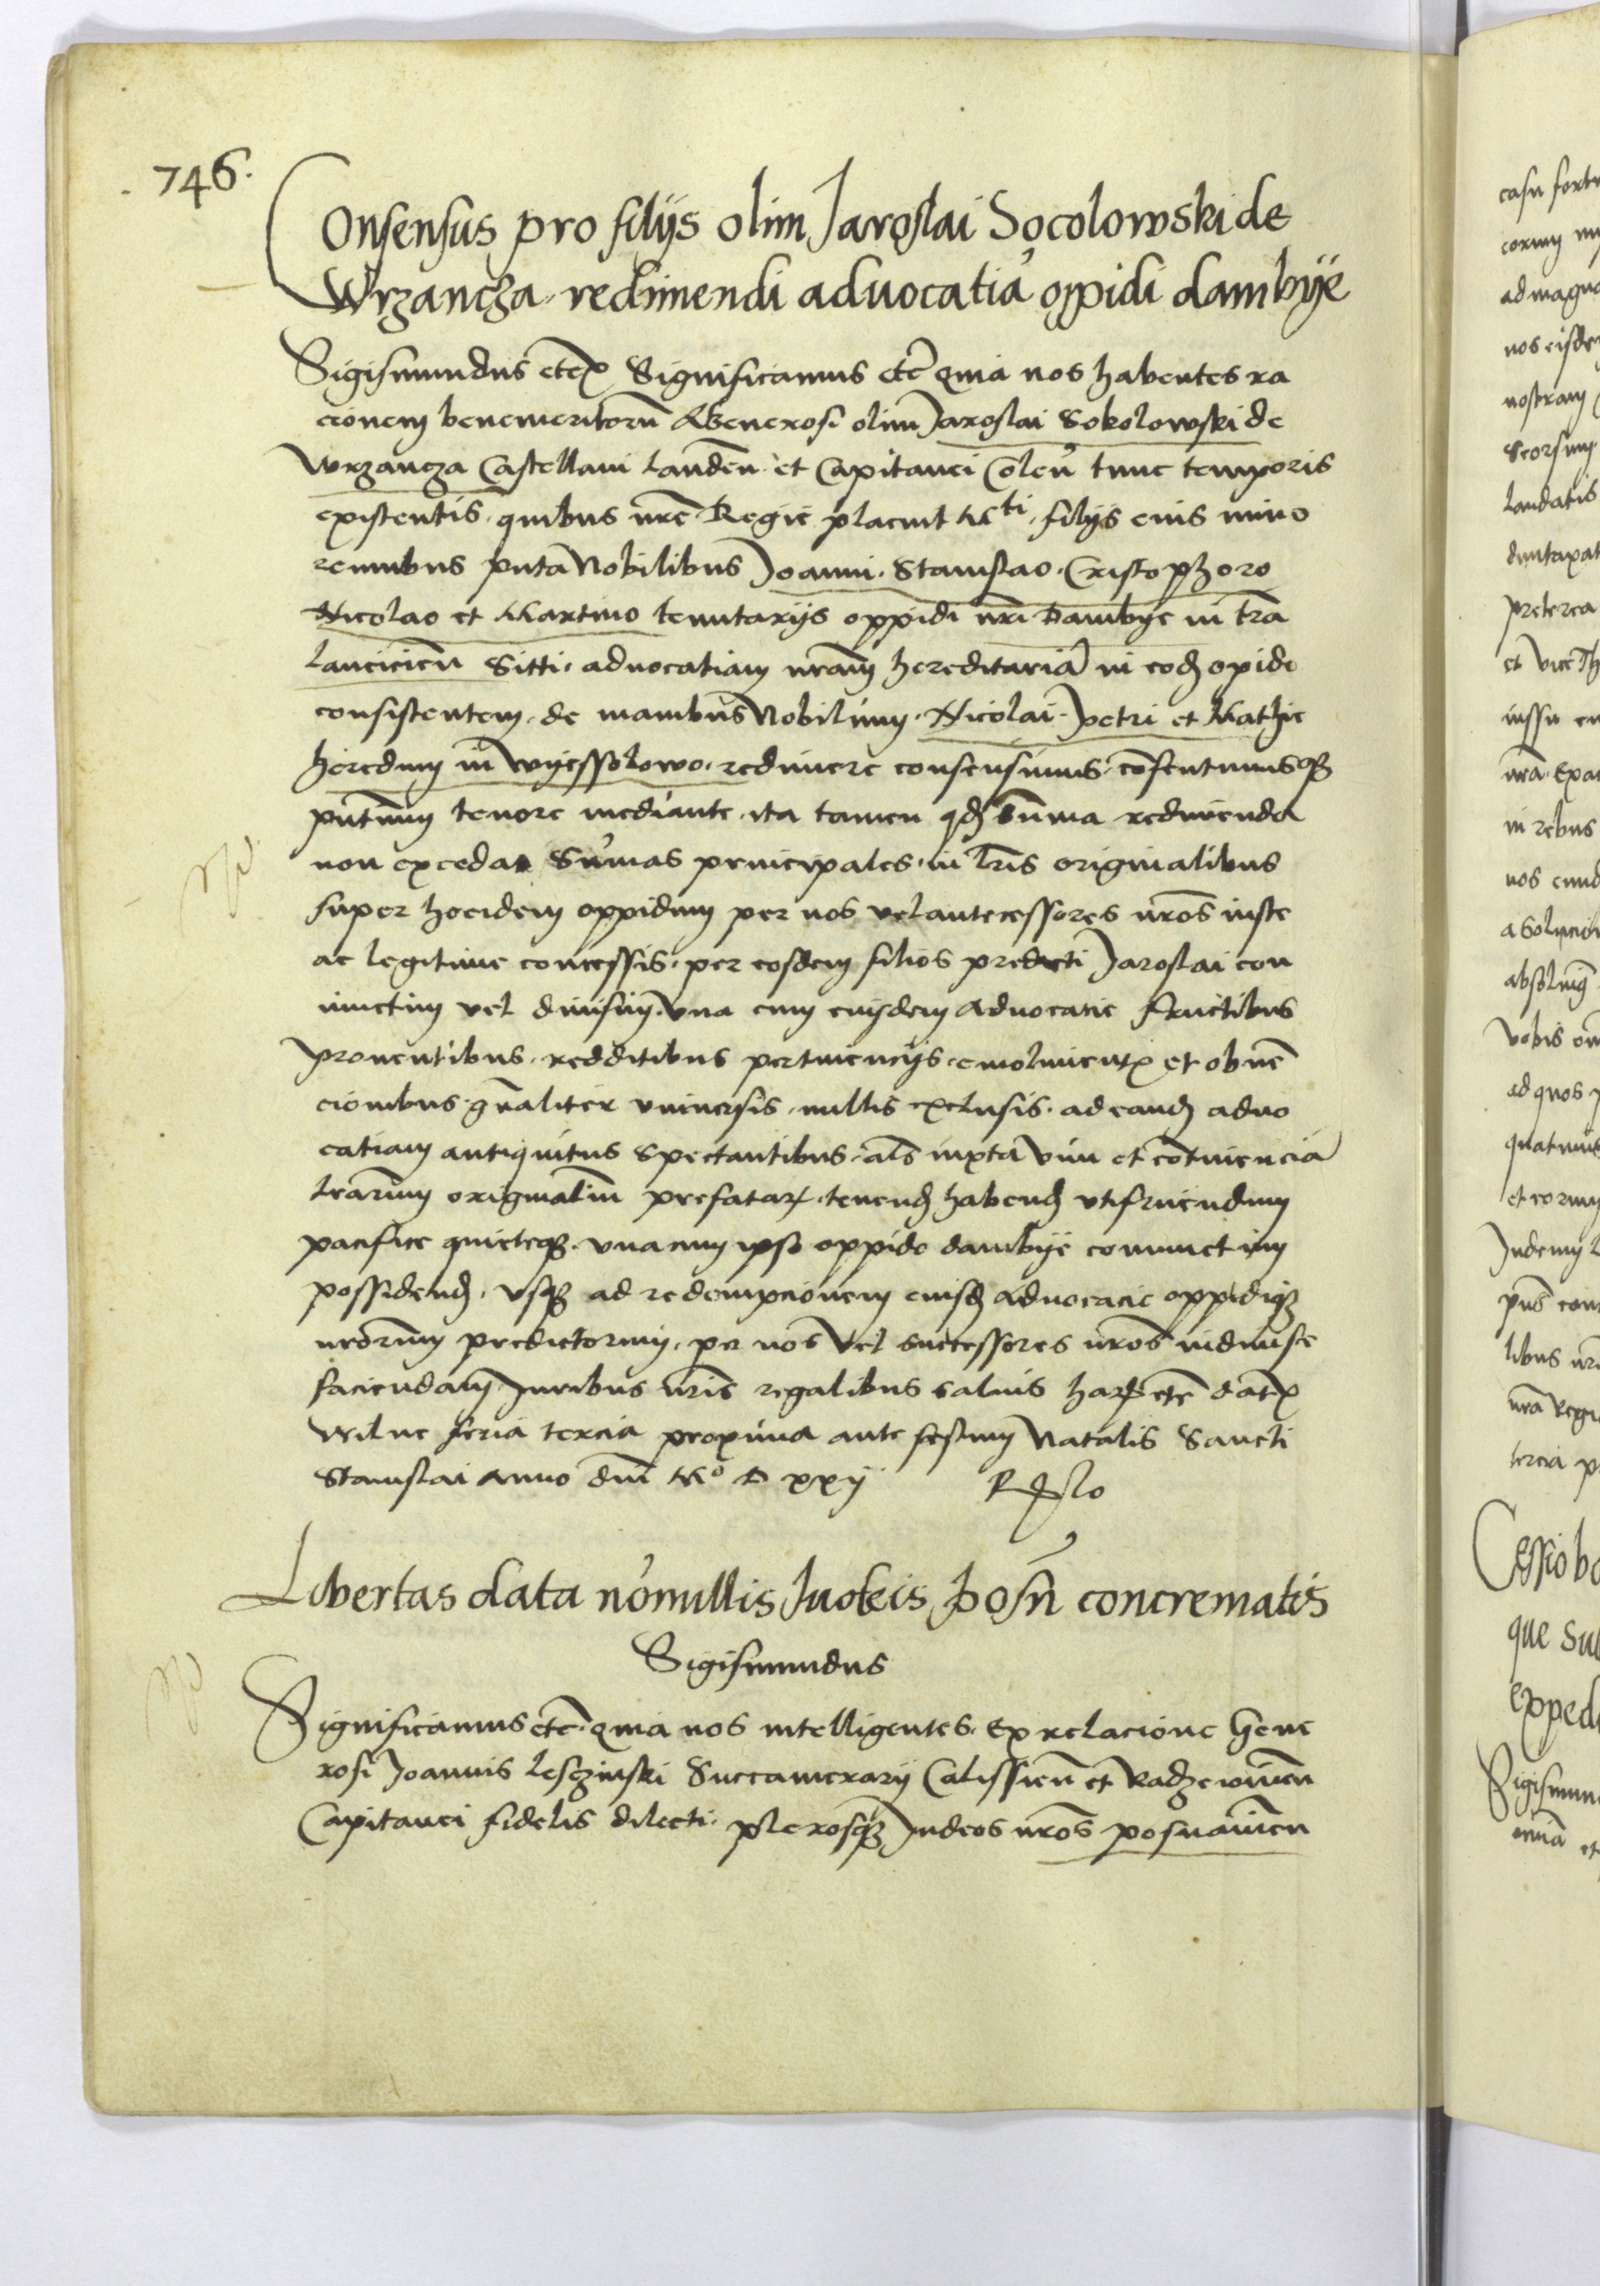 746.
Consensus pro filijs olim Jaroslai Socolowski de
Wrzancza redimendi advocatiā oppidi dambye
Sigismundus etc Significamus etc quia nos habentes ra
cionem benemeritorū Generosi olim Jaroslai Sokolowski de
Wrzancza Castellani landeñ et Capitanei Coleñ tunc temporis
existentis quibus nr̃e Regie placuit Mti filijs eius mino
rennibus puta Nobilibus Joanni Stanislao Cristophoro
Nicolao et Martino tenutarijs oppidi nr̃i Dambye in tr̃a
lancicieñ Sitti advocatiam nr̃am hereditariā in eod opido
consistentem de manibus Nobilium Nicolai petri et Mathie
heredum in Wyessolowo redimere consensimus consentimusq
pñtium tenore mediante ita tamen qd sūma redimenda
non excedat Sūmas principales in lr̃is originalibus
super hoc idem oppidum per nos vel antecessores nr̃os iuste
ac legitime concessis per eosdem filios predicti Jaroslai con
iunctim vel divisim vna cum eiusdem advocacie fructibus
proventibus redditibus pertinencijs emolument et obven
cionibus gñaliter vniversis nullis exclusis ad eand advo
catiam antiquitus spectantibus als iuxta vim et continenciā
lr̃arum originaliū prefatar tenend habend vtifruendum
pacifice quieteq vnacum ipso oppido dambye coniunctim
possidend vsq ad redempcionem eiusd advocacie oppidiq
nr̃orum predictorum per nos vel successores nr̃os iuste
faciendam Juribus nr̃is regalibus salvis har etc dat
Wilne feria tercia proxima ante festum Natalis Sancti
Stanislai anno dñi Mo D xxij
Libertas data nōnullis Judeis posñ concrematis
Sigismundus
Significamus etc quia nos intelligentes ex relacione Gene
rosi Joannis lesczinski Succamerarij Calissieñ et Radzeiovieñ
Capitanei fidelis dilecti plerosq Judeos nr̃os posnanieñ